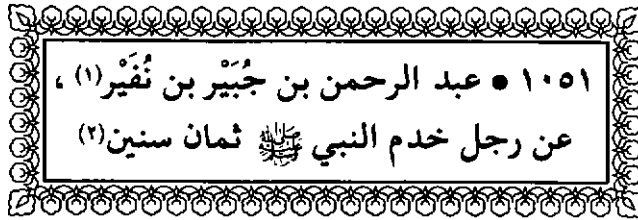 ١٠٥١ • عبد الرحمن بن جُبَيْر بن نُفَيْر(١) ،
عن رجل خدم النبي ﷺ ثمان سنين(٢)